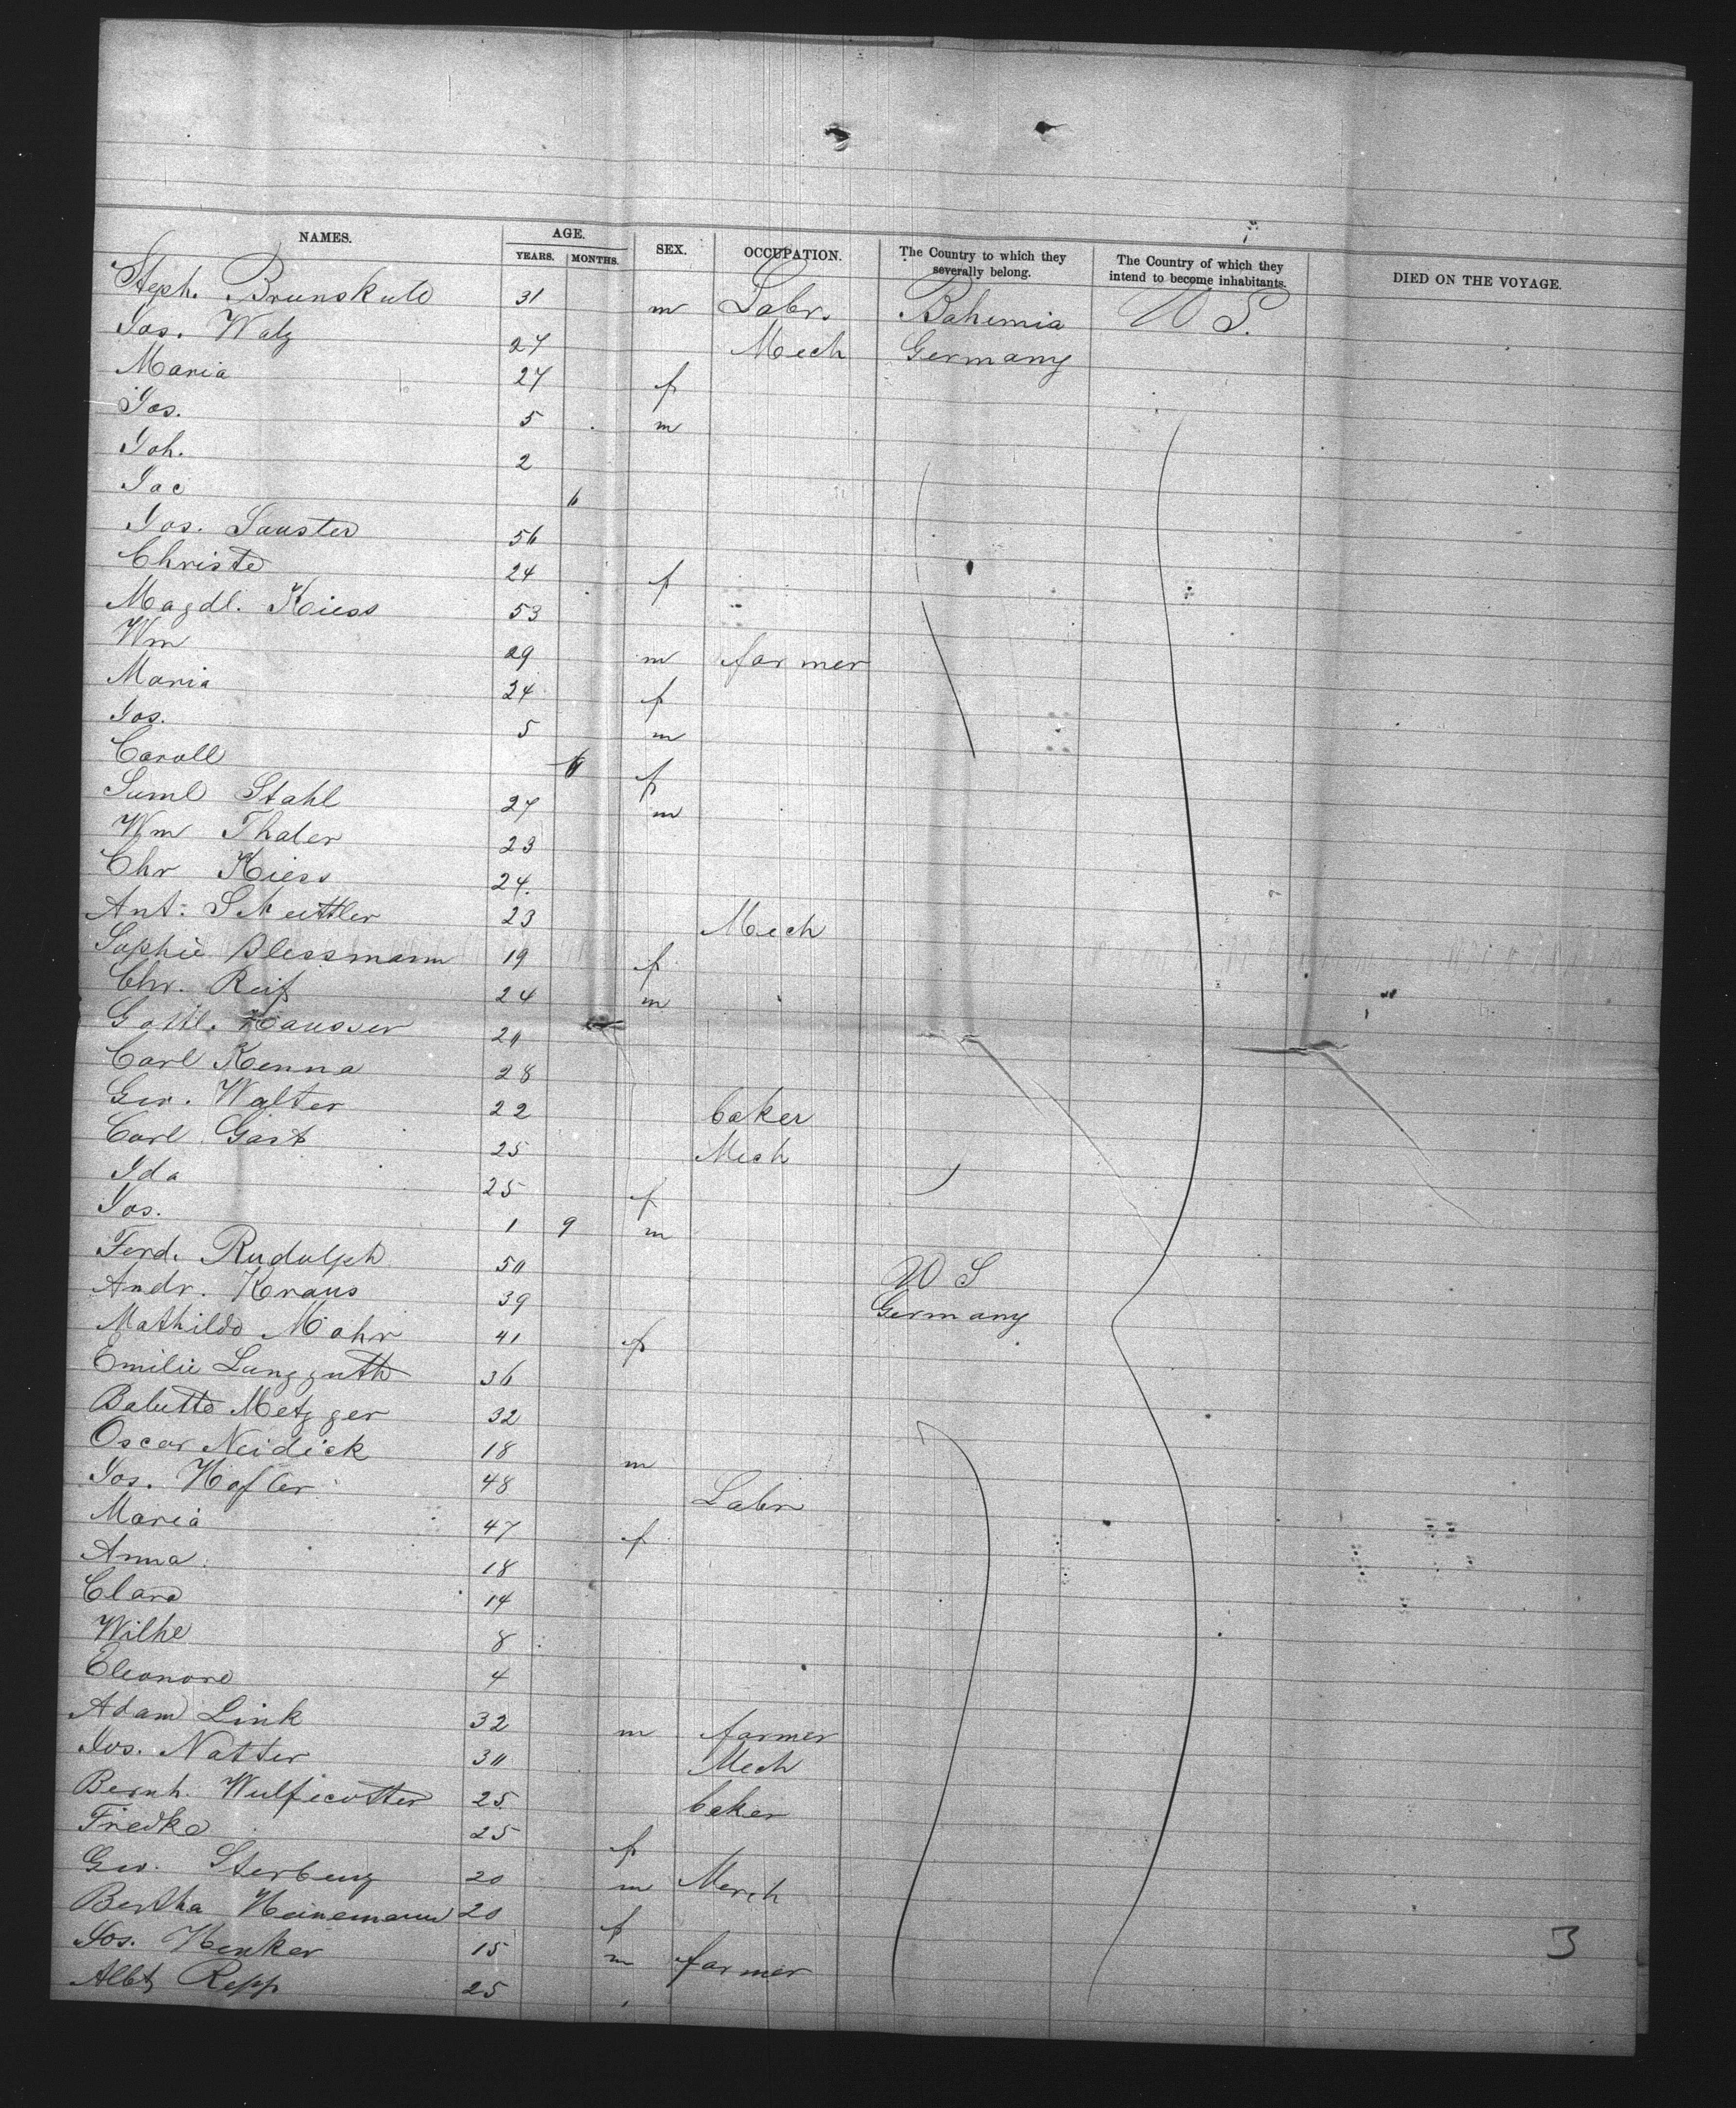 NAMES. AGE. YEARS. MONTHS. SEX. OCCUPATION. The Country to which they severally belong. The Country of which they intend to become inhabitants. DIED ON THE VOYAGE.
Steph. 31 m Labr. Bohemia U S.
Jos. Walz 27 Mech Germany
Maria 27 f
Jos. 5 m
Joh. 2
Jac 6
Jos. Sauster 56
Christe 24 f
Magdl. Kiess 53
Wm 29 m farmer
Maria 24 f
Jos. 5 m
Caroll 6 f
Saml Stahl 27 m
Wm Thaler 23
Chr Kiess 24.
Ant: 23 Mech
Sophie Blessmann 19 f
Chr. Reif 24 m
Gottl. Hausser 20
Carl Kenna 28
Geo. Walter 22 baker
Carl Gast 25 Mech
Ida 25 f
Jos. 1 9 m
Ferd. Rudolph 50 U S
Andr. Kraus 39 Germany
Mathilde Mohr 41 f
Emilie Langguth 36
Babette Metzger 32
Oscar Neidick 18 m
Jos. Hofler 48 Labr
Maria 47 f
Anna 18
Clara 14
Wilhe 8
Eleonore 4
Adam Link 32 m farmer
Jos. Natter 30 Mech
Bernh. 25 baker
Friedke 25 f
Geo. 20 m Merch
Bertha Heinemann 20 f
Jos. Henker 15 m farmer
Albt Repp 25
3